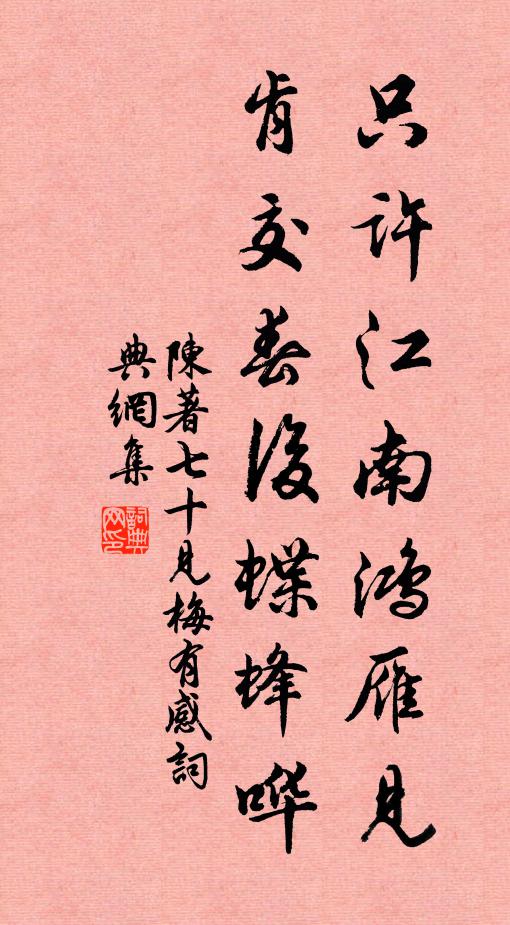 只许江南鸿雁见
肯交春后蝶蜂哗
陳著七十見梅有感詞
典網集
詞典網印